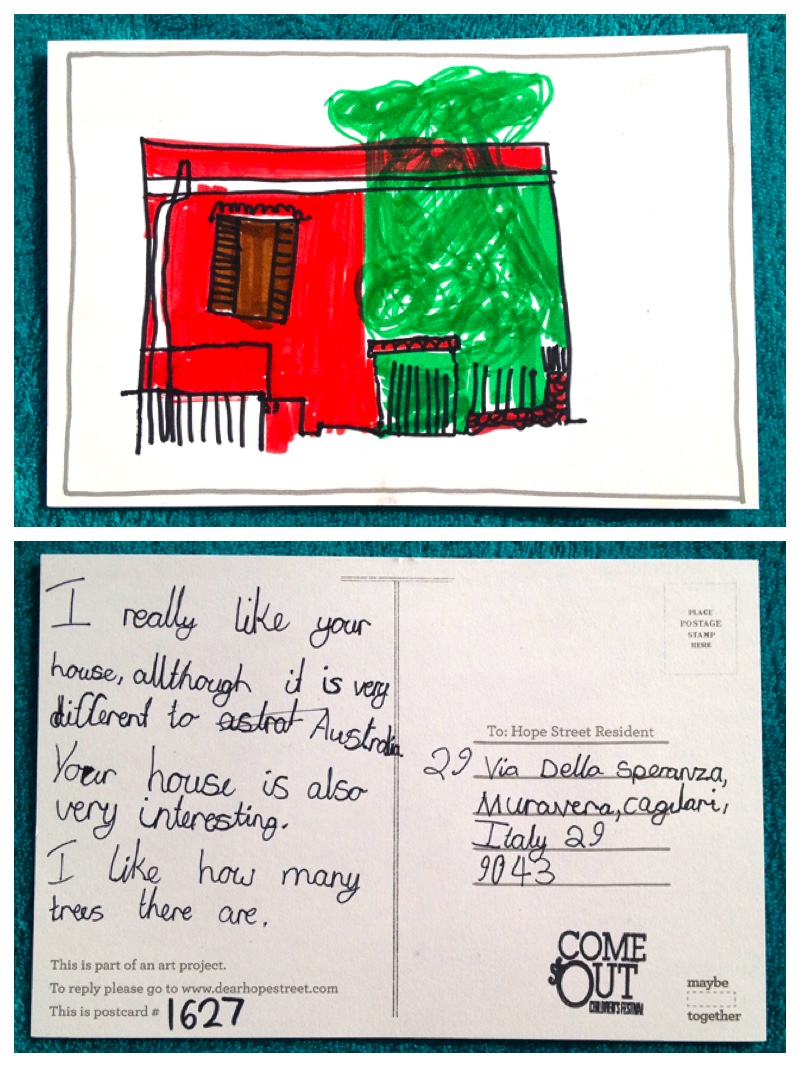 I really like your
house, allthough it is very
different to astrat Australia
Your house is also
very interesting.
I like how many
trees there are.
This is part of an art project.
To reply please go to www.dearhopestreet.com
This is postcard # 1627
PLACE
POSTAGE
STAMP
HERE
To: Hope Street Resident
29 Via Della Speranza,
Muravera, Cagilari,
Italy 29
9043
COME
OUT
CHILDREN'S FESTIVAL
maybe
together